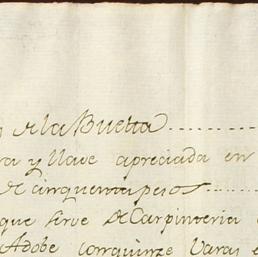 de la Buelta
ra y llave apreciada en
de cinquenta pesos
que sirve de Carpinteria
Adobe con quinze Varas